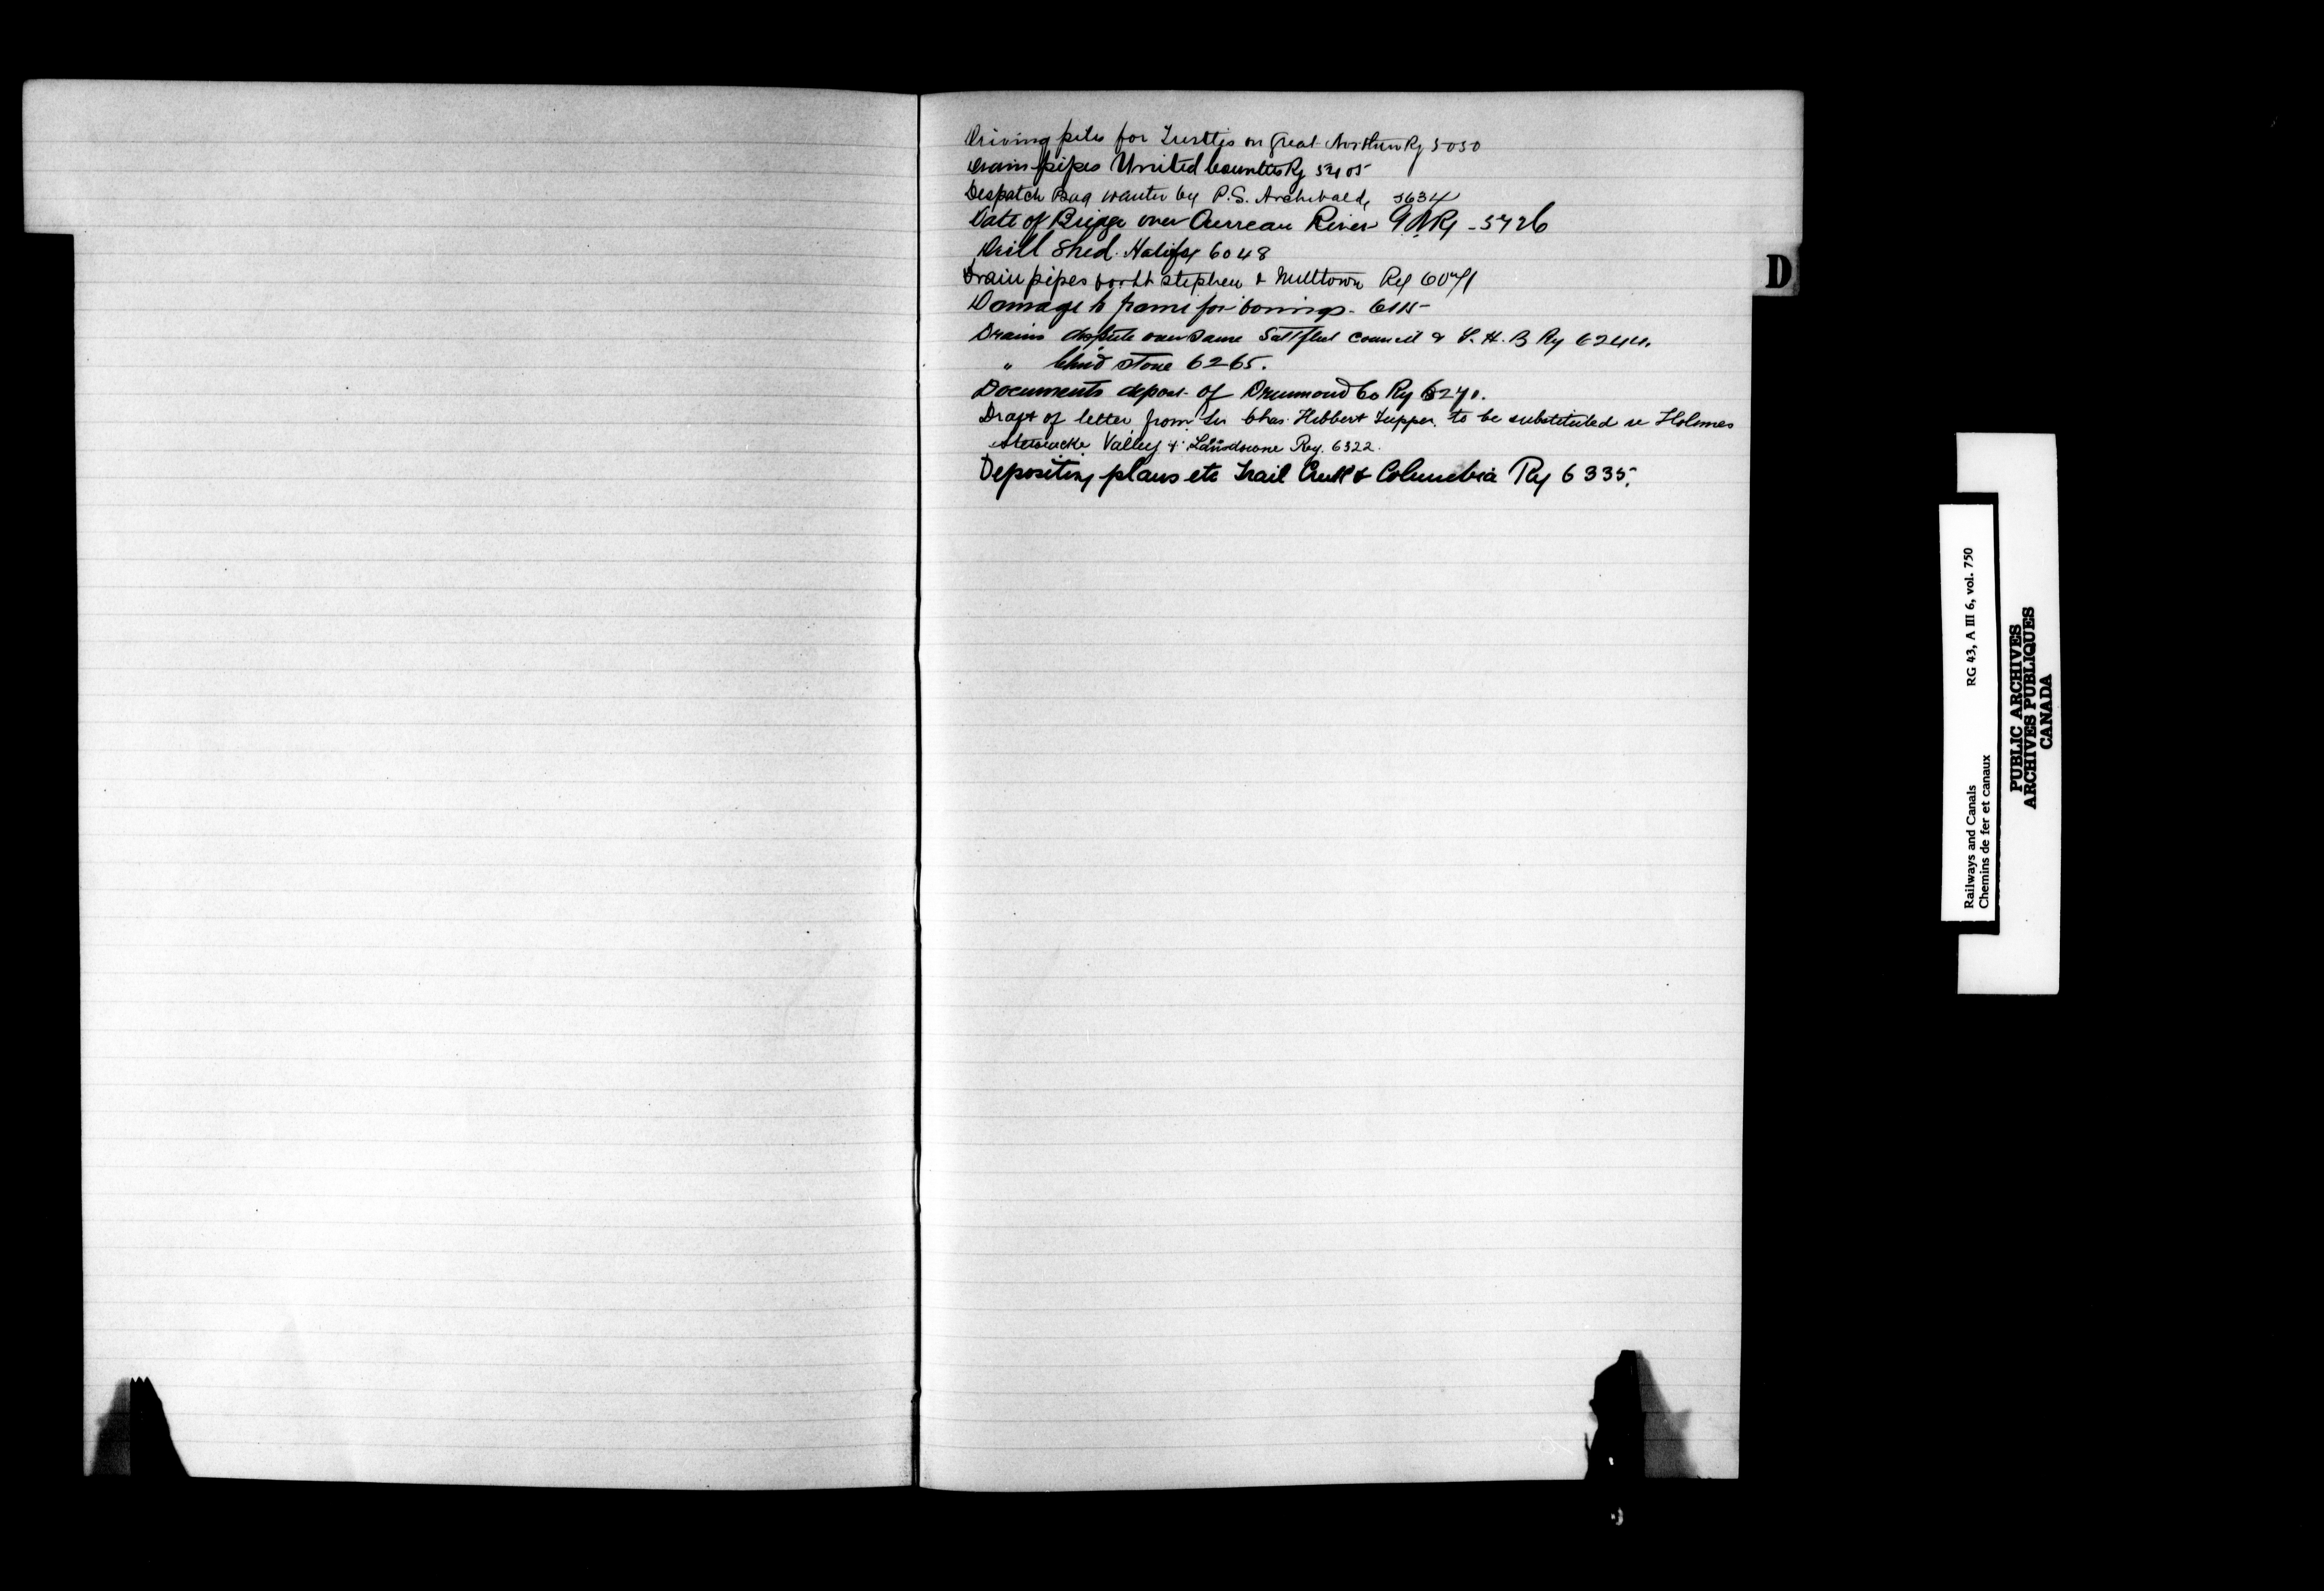 Driving piles for Trestles on Great Northern Ry 5050
Drain pipes United Counties Ry
Despatch Bag wanted by P.S. Archibald, 5634
Date of Bridge over River G.N.Ry - 5726
Drill Shed. Halifax 6048
Drain pipes for St Stephen & Milltown Ry
Damage to frame for borings - 6115
Drains dispute over same Saltfleet Council & T. H. B Ry 6244.
" stone 6265.
Documents depost. of Drummond Co Ry 6270.
Draft of letter from Sir Chas. Hibbert Tupper. to be substituted re Holmes
Valley & Lansdowne Ry. 6322.
Depositing plans etc Trail Creek & Columbia Ry 6335.
D
Railways and Canals RG 43, A III 6, vol. 750
Chemins de fer et canaux
PUBLIC ARCHIVES
ARCHIVES PUBLIQUES
CANADA